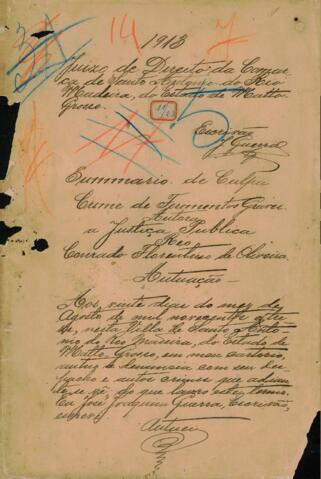 14 7
1913
Juizo de Direito da Comar
ca de Santo Antonio do Rio
Madeira, do Estado de Matto
Grosso
5
Escrivão
Guerra
Summario de Culpa
Crime de Ferimentos Graves
Autora
a Justiça Publica
Réo
Conrado Florentino de Oliveira.
Autuação
Aos vinte dias do mez de
Agosto de mil novecentos e tre
se, nesta Villa de Santo Anto
nio do Rio Madeira, do Estado de
Matto Grosso, em meu cartorio,
autuo a denuncia com seu des
pacho e autos crimes que adian
te se vê; do que lavro este termo.
Eu José Joaquim Guerra, Escrivão,
escrevi.
Autuei